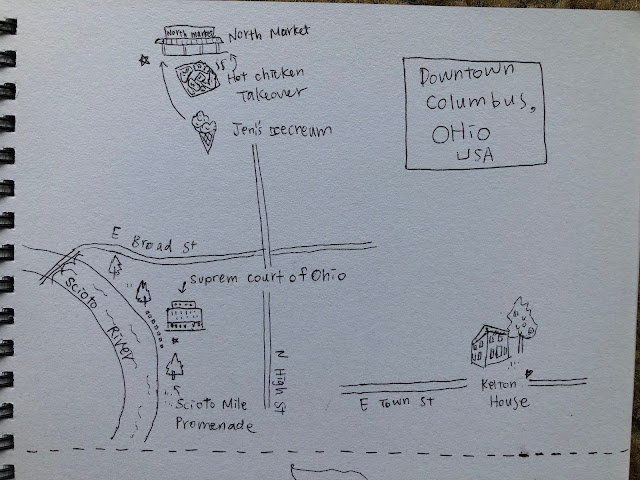 North market
North Market
Hot chicken
Takeover
Jeni's Icecream
Downtown
Columbus,
OHio
USA
E Broad St
Suprem court of Ohio
Scioto River
N High St
Scioto Mile
Promenade
E Town St
Kelton
House